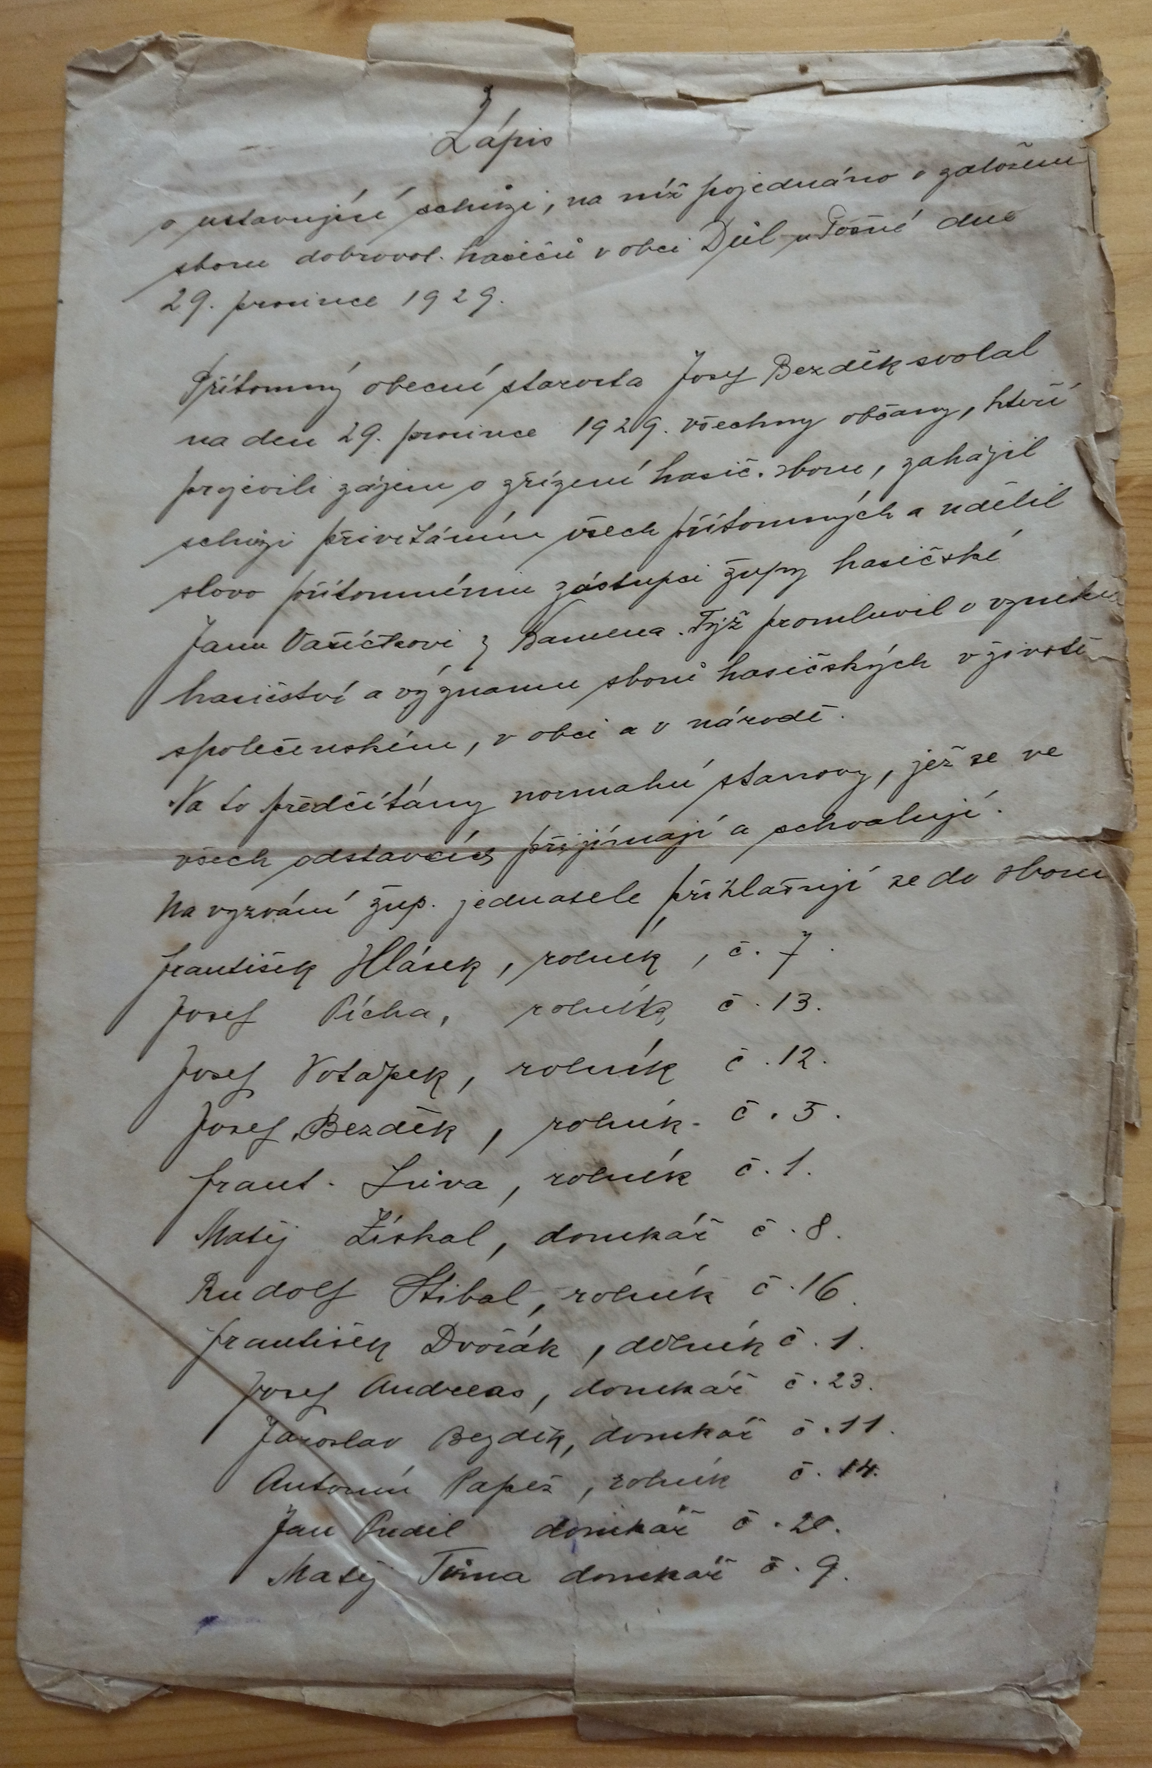 Zápis
o ustavující schůzi, na níž pojednáno o založení
sboru dobrovol. hasičů v obci Důl u Pošné dne
29. prosince 1929.
Přítomný obecní starosta Josef Bezděk svolal
na den 29. prosince 1929. všechny občany, kteří
projevili zájem o zřízení hasič. sboru, zahájil
schůzi přivítáním všech přítomných a udělil
slovo přítomnému zástupci župy hasičské
Janu Vaníčkovi z Kamena. Týž promluvil o vzniku
hasičství a významu sborů hasičských v životě
společenském, v obci a v národě.
Na to předčítány normální stanovy, jež se ve
všech odstavcích přijímají a schvalují.
Na vyzvání žup. jednatele přihlašují se do sboru
František Hlásek, rolník, č. 7.
Josef Pícha, rolník, č. 13.
Josef Votápek, rolník č. 12.
Josef Bezděk, rolník. č. 5.
Frant. Lůva, rolník č. 1.
Matěj Získal, domkář č. 8.
Rudolf Stibal, rolník č. 16.
František Dvořák, dělník č. 1.
Josef Andreas, domkář č. 23.
Jaroslav Bezděk, domkář č. 11.
Antonín Papež, rolník č. 14.
Jan Pudil domkář č. 20.
Matěj Tůma domkář č. 9.